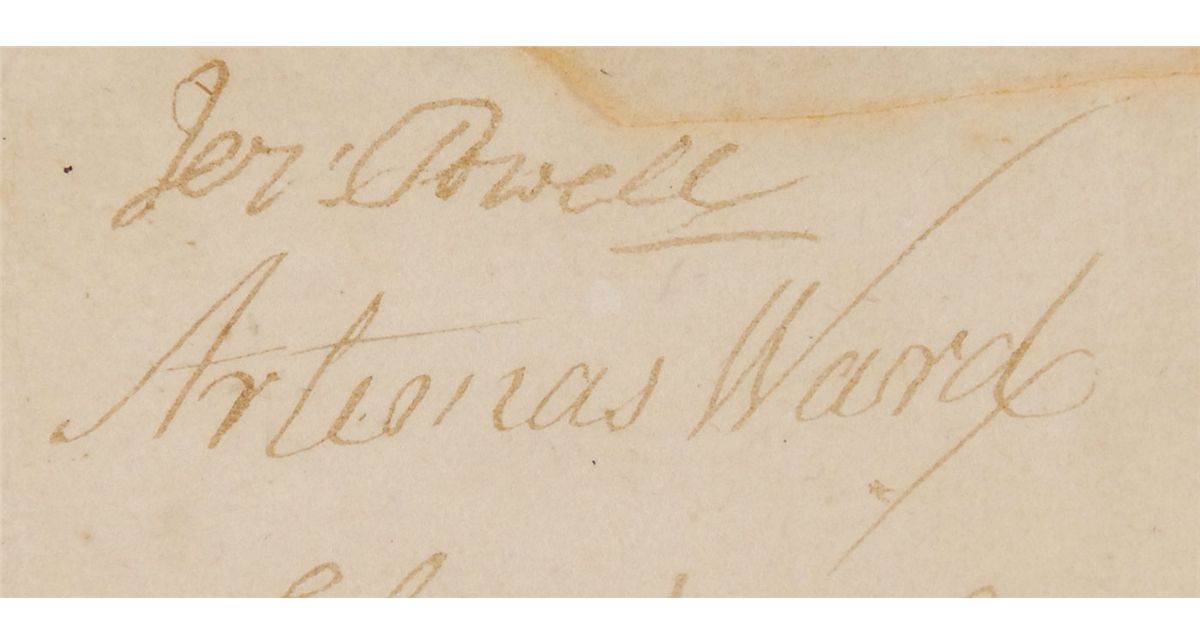 Jer: Powell
Artemas Ward